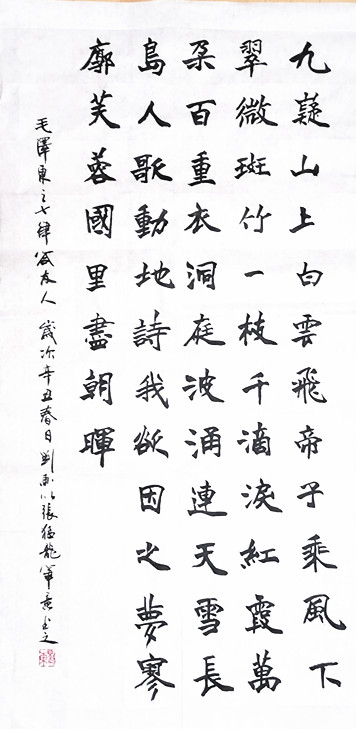 九嶷山上白雲飛帝子乘風下
翠微斑竹一枝千滴淚紅霞萬
朶百重衣洞庭波涌連天雪長
島人歌動地詩我欲因之夢寥
廓芙蓉國里盡朝暉
毛澤東之七律答友人 歲次辛丑春日 劉 以張猛龍筆意書之